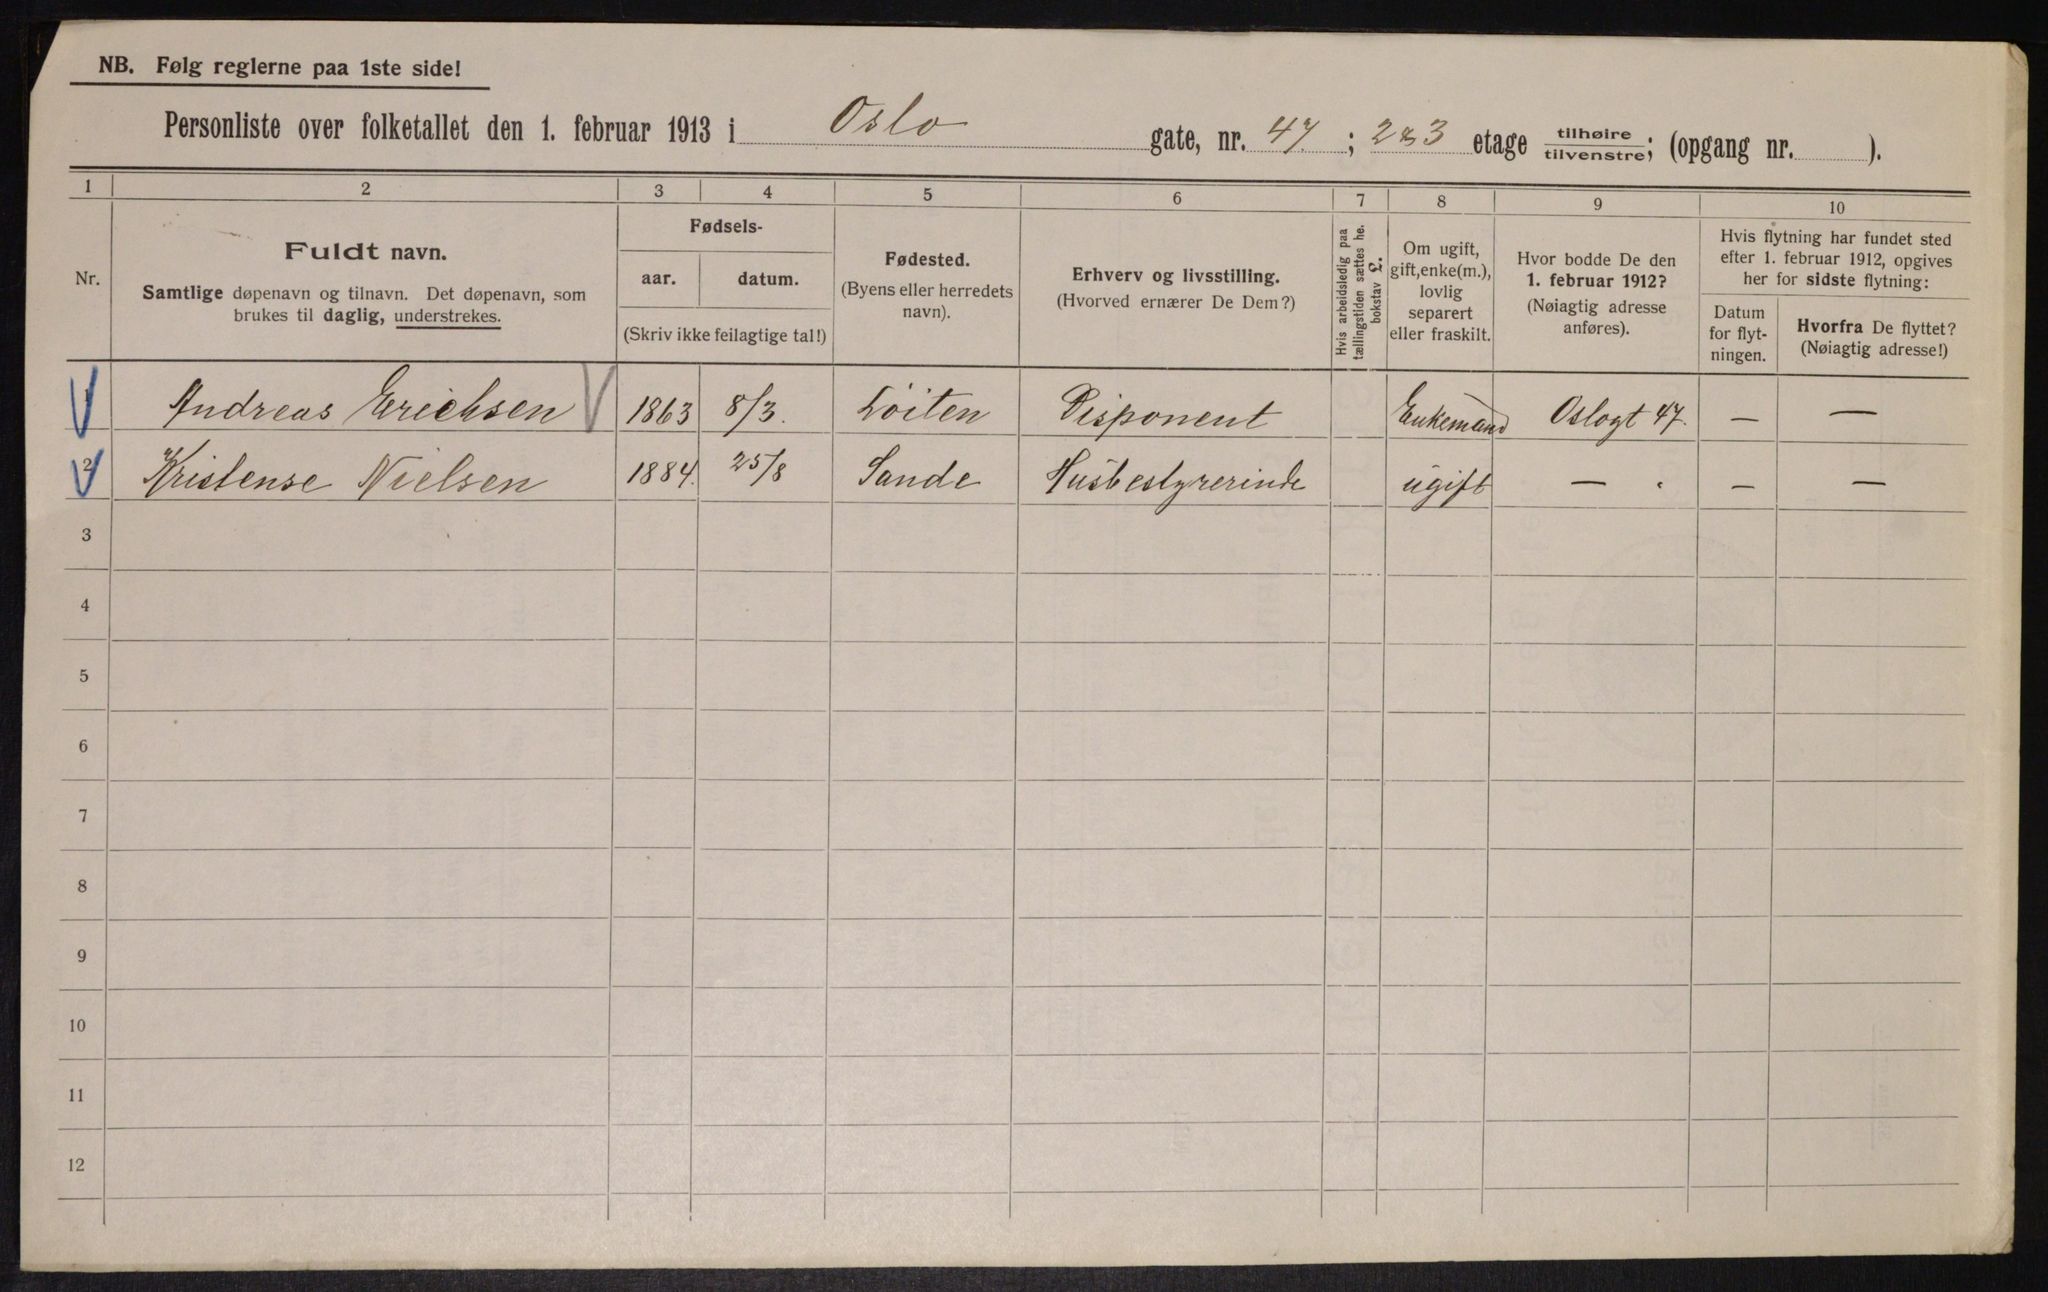 NB. Følg reglerne paa 1ste side!
Personliste over folketallet den 1. februar 1913 i Oslo gate, nr. 47 ; 2 & 3 etage tilhøire/tilvenstre; (opgang nr. ).
1 2 3 4 5 6 7 8 9 10
Nr.
Fuldt navn.
Samtlige døpenavn og tilnavn. Det døpenavn, som
brukes til daglig, understrekes.
Fødsels-
aar. datum.
(Skriv ikke feilagtige tal!)
Fødested.
(Byens eller herredets
navn).
Erhverv og livsstilling.
(Hvorved ernærer De Dem?)
Hvis arbeidsledig paa
tællingstiden sættes he.
bokstav L.
Om ugift,
gift, enke(m.),
lovlig
separert
eller fraskilt.
Hvor bodde De den
1. februar 1912?
(Nøiagtig adresse
anføres).
Hvis flytning har fundet sted
efter 1. februar 1912, opgives
her for sidste flytning:
Datum
for flyt-
ningen.
Hvorfra De flyttet?
(Nøiagtig adresse!)
1 Andreas Erichsen 1863 8/3. Löiten Disponent Enkemand Oslogt 47. — —
2 Kristense Nielsen 1884. 25/8 Sande Husbestyrerinde ugift — . — —
3
4
5
6
7
8
9
10
11
12